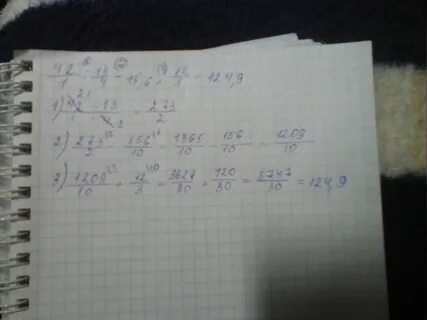 42/1 · 13/4 - 15,6 + 12/3 = 124,9
1) 42/1 · 13/4 = 273/2
2) 273/2 - 156/10 = 1365/10 - 156/10 = 1209/10
3) 1209/10 + 12/3 = 3627/30 + 120/30 = 3747/30 = 124,9